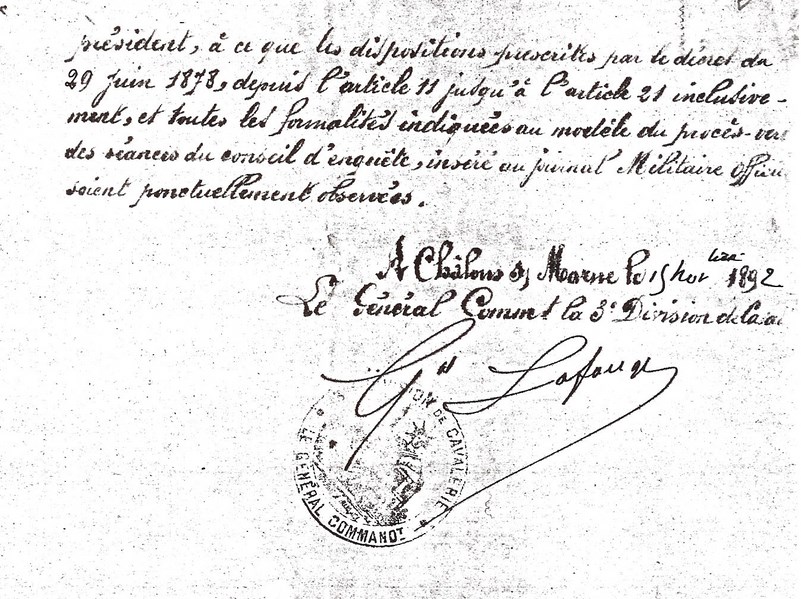 président, à ce que les dispositions prescrites par le décret du
29 Juin 1878, depuis l'article 11 jusqu'à l'article 21 inclusive-
ment, et toutes les formalités indiquées au modèle du procès-ver
des séances du conseil d'enquête, inséré au journal Militaire Offici
soient ponctuellement observées.
A Châlons s/ Marne le 15 1892
Le Général Commt la 3e Division de Ca
Gal Lafouge
ION DE CAVALERIE
LE GÉNÉRAL COMMANDT